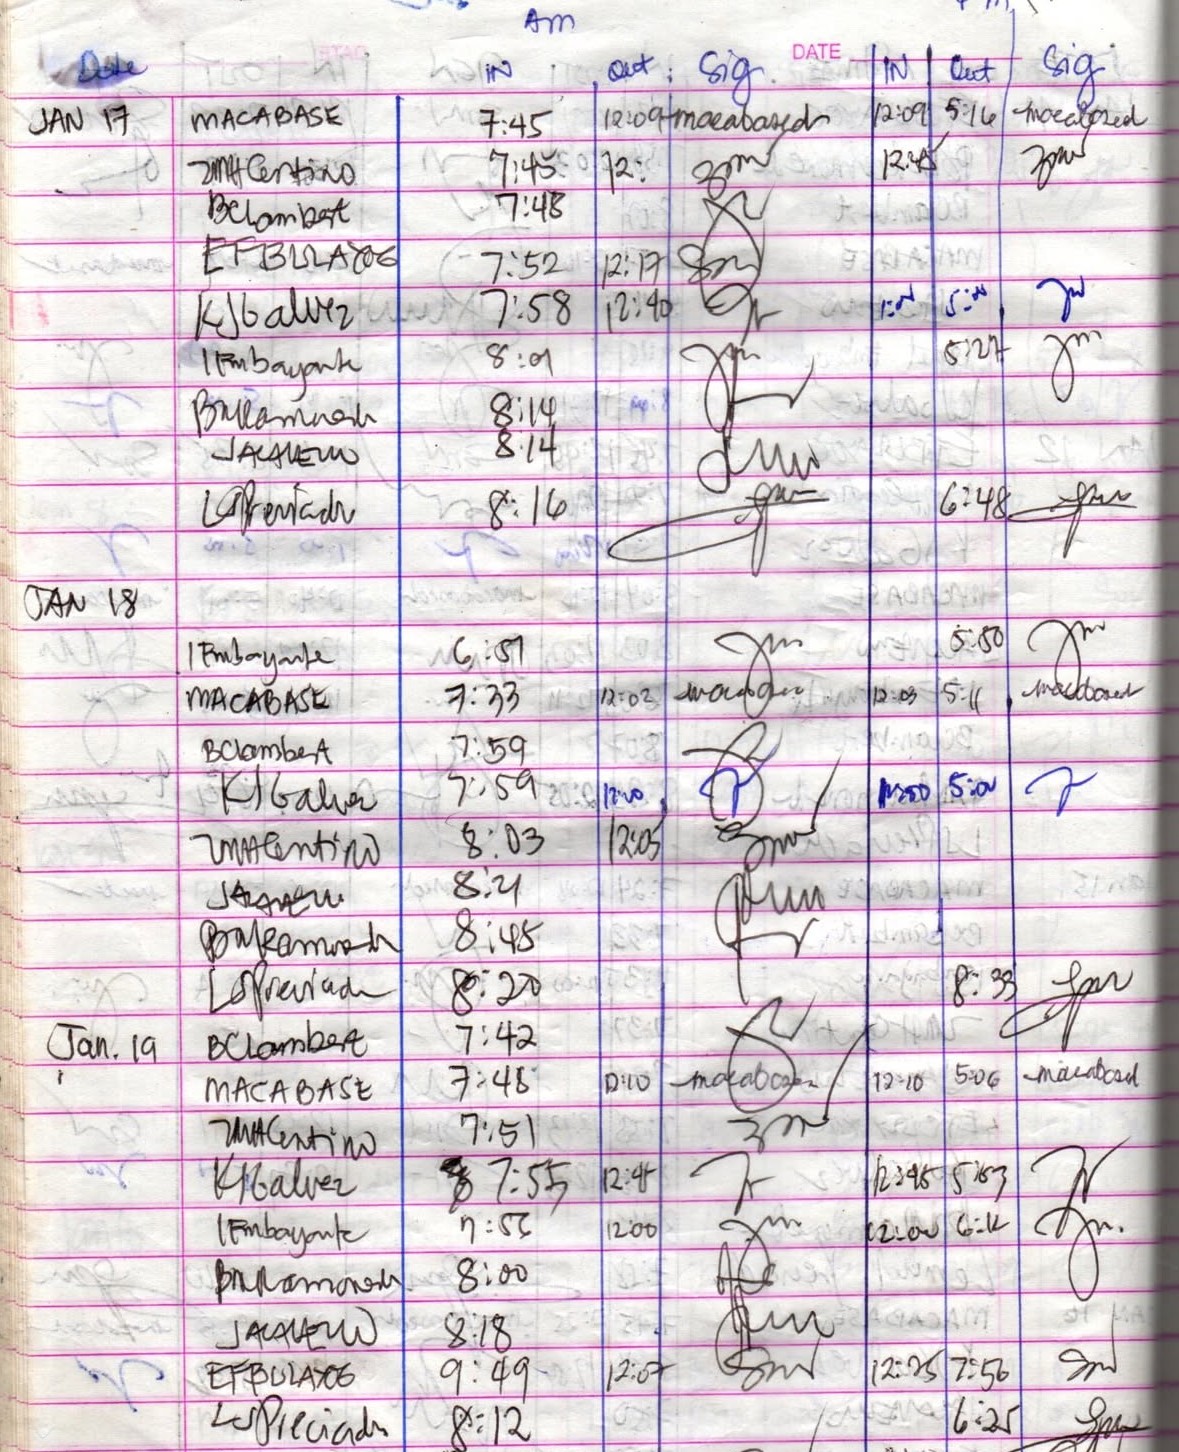 Am
DATE
Date IN Out Sig. IN Out Sig
JAN 17 MACABASE 7:45 12:09 macabased 12:09 5:16 macabased
JMHCentino 7:45 12: 12:45
BCLambert 7:48
EFBULAYOG 7:52 12:17
KJGalvez 7:58 12:40 5:00
IEmbayante 8:01 5:27
BMRamonesh 8:14
8:14
LSPreciado 8:16 6:48
JAN 18
IEmbayante 6:51 5:50
MACABASE 7:33 12:03 12:03 5:11 macabased
BCLambert 7:59
KJGalvez 7:59 5:00
JMHCentino 8:03 12:05
8:21
BMRamonesh 8:45
LSPreciado 8:20 8:33
Jan. 19 BCLambert 7:42
MACABASE 7:48 12:10 macabased 12:10 5:06 macabased
JMHCentino 7:51
KJGalvez 7:55 12:45 12:45 5:53
IEmbayante 7:55 12:00 12:00 6:12
BMRamonesh 8:00
8:18
EFBULAYOG 9:49 12:07 12:25 7:56
LSPreciado 8:12 6:25